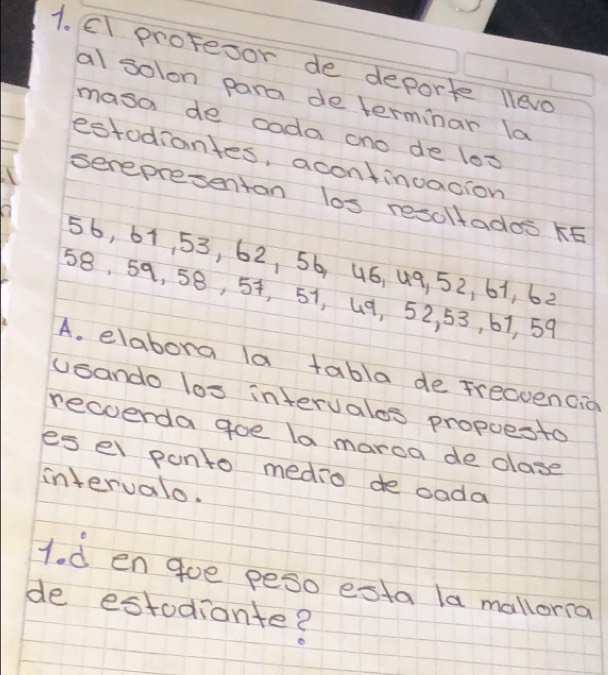 1. El profesor de deporte llevo
al solon para determinar la
masa de cada uno de los
estudiantes, acontinuacion
serepresentan los resultados KG
56, 61, 53, 62, 56, 46, 49, 52, 61, 62
58, 59, 58, 57, 51, 49, 52, 53, 61, 59
A. elabora la tabla de Frecuencia
usando los intervalos propuesto
recuerda que la marca de clase
es el punto medio de cada
intervalo.
1. ¿ en que peso esta la malloria
de estudiante?